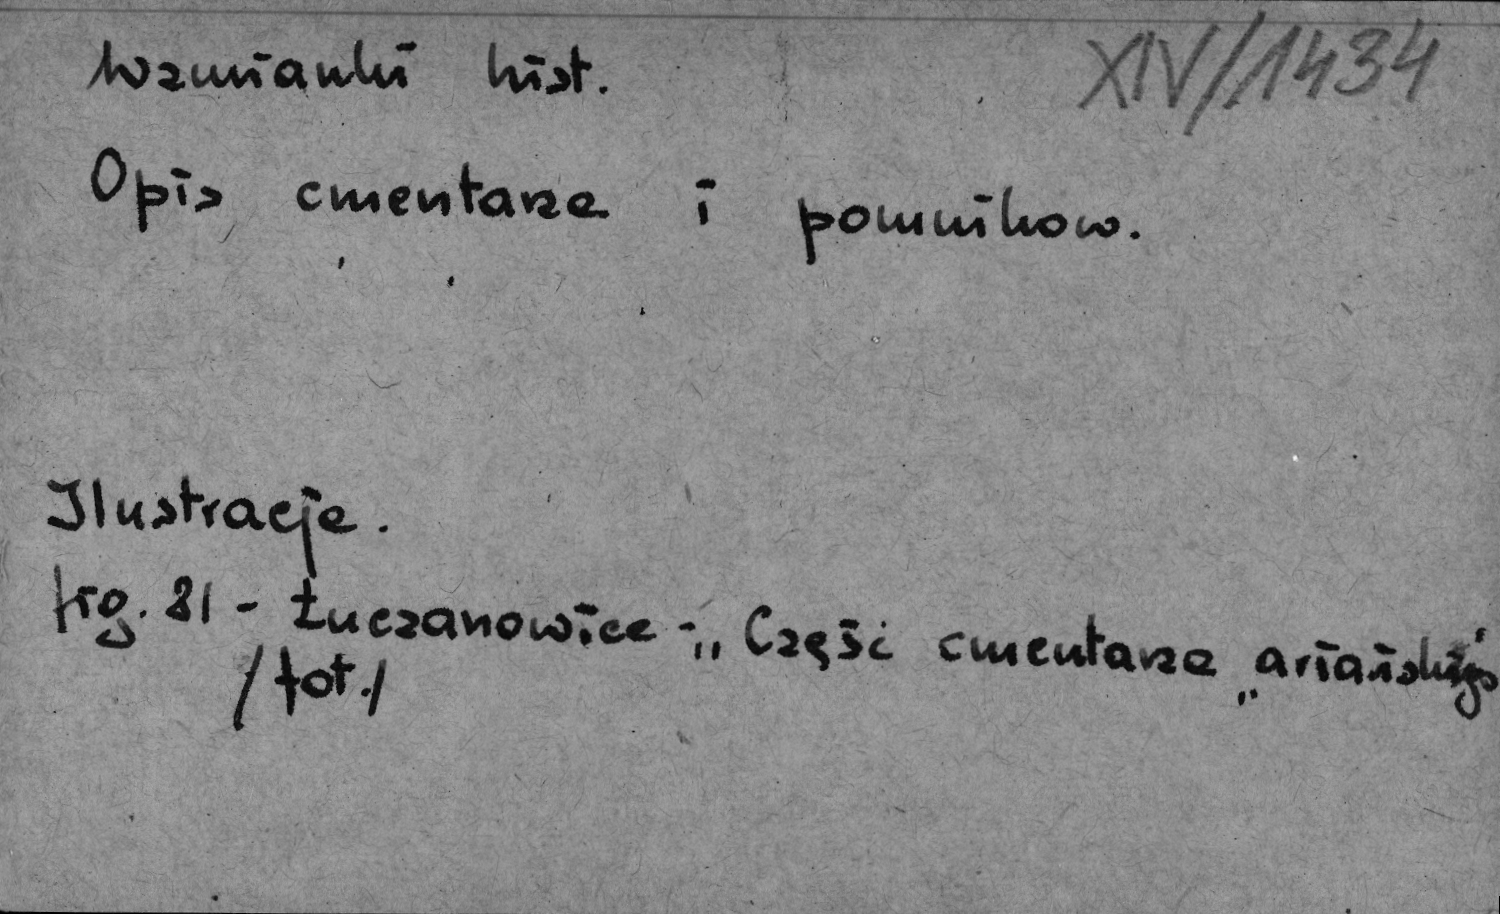 Wzmianki hist. XIV/1434
Opis cmentarza i pomnikow.
Ilustracje.
fig. 21 - Łuczanowice - „Część cmentarza „ariańskiego"
/fot./